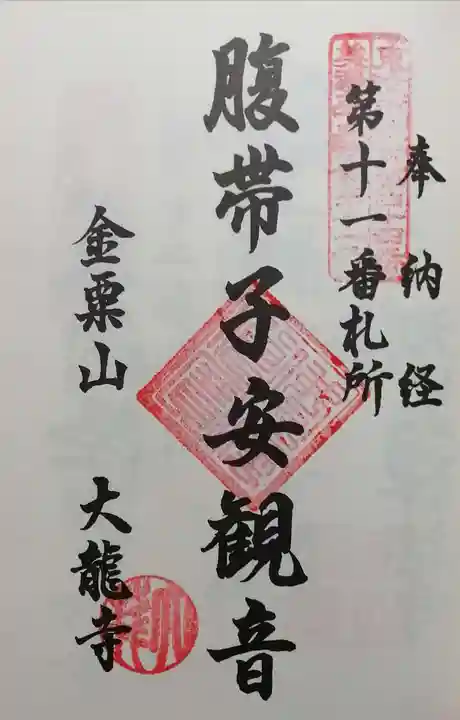 奉納経
第十一番札所
腹帯子安観音
金粟山 大龍寺